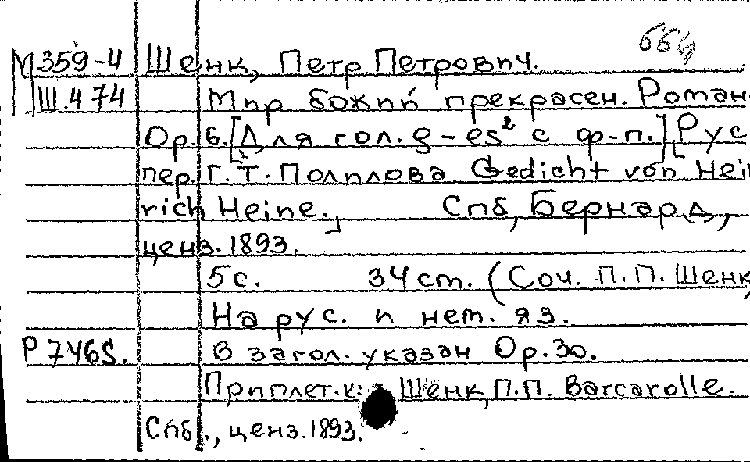 664
М 359-4 Шенк, Петр Петрович.
Ш.474 Мир божий прекрасен. Роман
Ор. 6. [Для гол. g-es² с ф-п.] Рус
пер. Г.Т. Полилова Gedicht von Hein
rich Heine. Спб, Бернард,
ценз. 1893.
5 с. 34 cm. (Соч. П.П. Шенк
На рус. и нем. яз.
Р 746S. В загол. указан Ор. 30.
Приплет. к: Шенк, П.П. Barcarolle.
Спб., ценз. 1893.